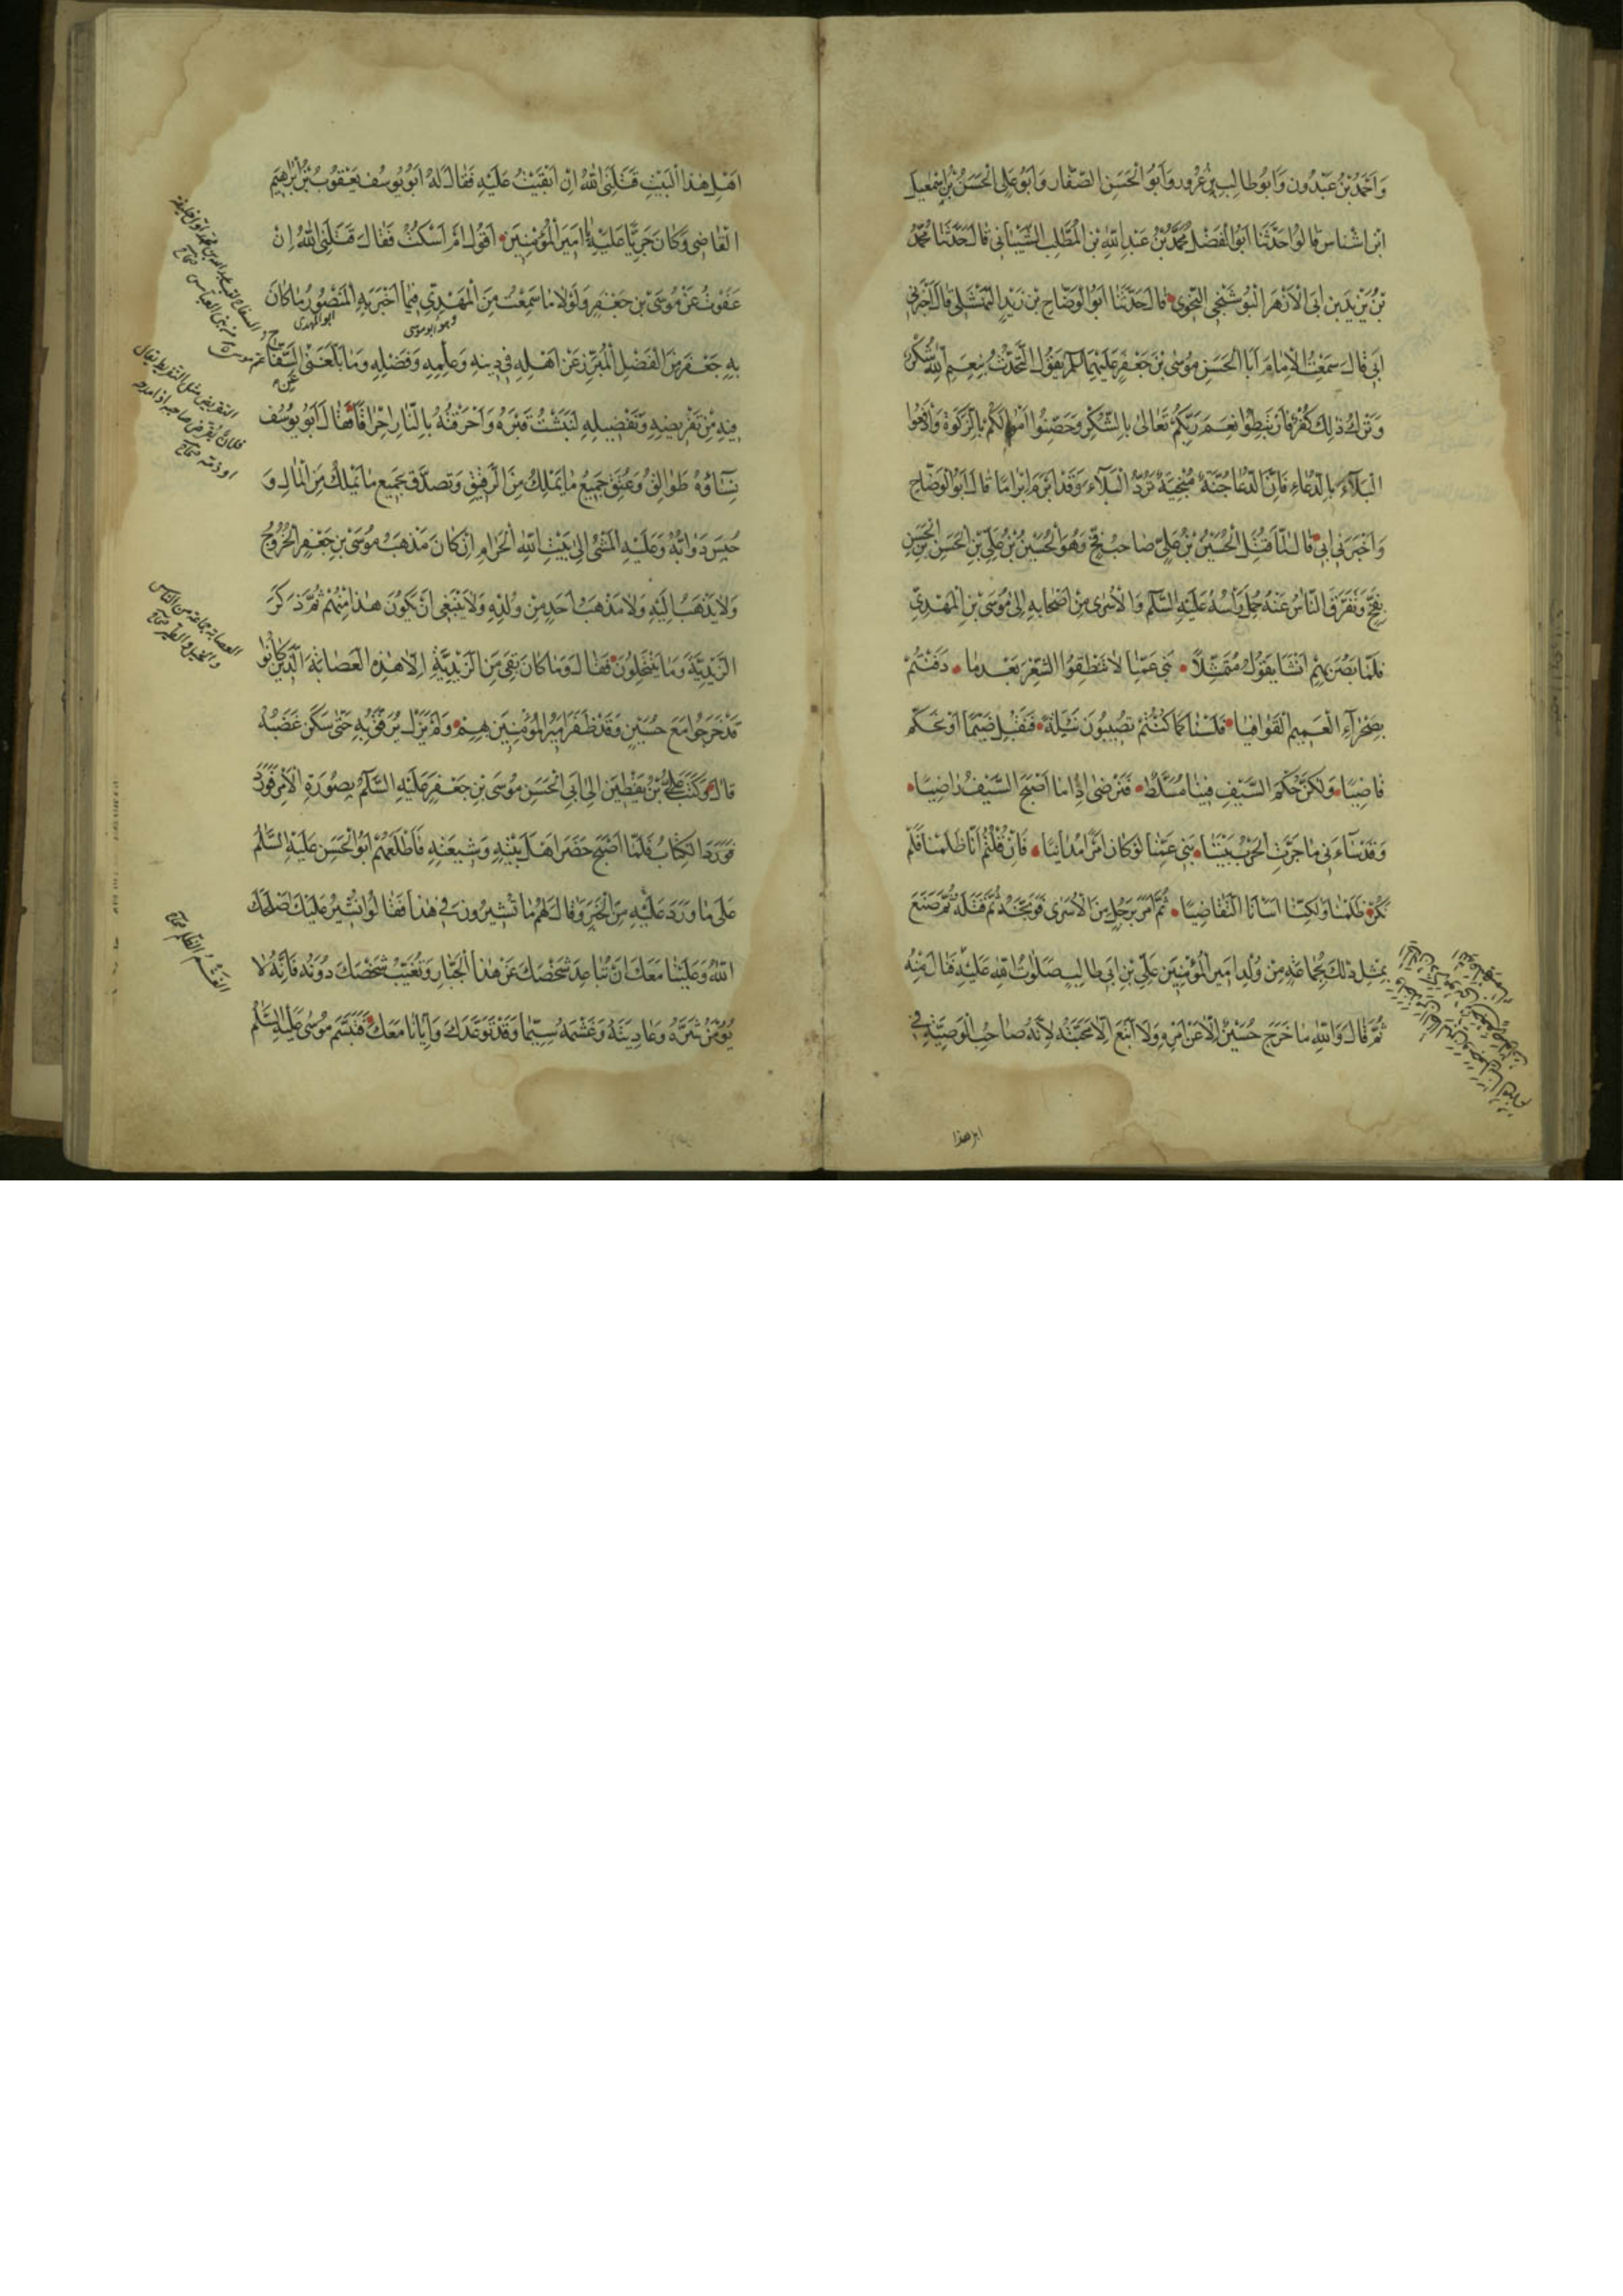 وَاَحْمَدُ بْنُ عَبْدُونٍ وَاَبُو طَالِبِ بْنِ غُرُورٍ وَاَبُو الْحَسَنِ الصَّفَّارِ وَاَبُو عَلِيٍّ الْحَسَنُ بْنُ اِسْمٰعِيلَ
ابْنِ اَشْنَاسٍ قَالُوا حَدَّثَنَا اَبُو الْفَضْلِ مُحَمَّدُ بْنُ عَبْدِ اللّٰهِ بْنِ الْمُطَّلِبِ الشَّيْبَانِي قَالَ حَدَّثَنَا مُحَمَّدُ
بْنُ يَزِيْدَ بْنِ اَبِي الْاَزْهَرِ الْبُوشَنْجِي النَّحْوِي قَالَ حَدَّثَنَا اَبُو الْوَضَّاحِ بْنُ زَيْدٍ النَّهْشَلِي قَالَ اَخْبَرَنِي
اَبِي قَالَ سَمِعْتُ الْاِمَامَ اَبَا الْحَسَنِ مُوسَى بْنَ جَعْفَرٍ عَلَيْهِمَا السَّلَامُ يَقُولُ التَّحَدُّثُ بِنِعَمِ اللّٰهِ شُكْرٌ
وَتَرْكُ ذٰلِكَ كُفْرٌ فَارْتَبِطُوا نِعَمَ رَبِّكُمْ تَعَالٰى بِالشُّكْرِ وَحَصِّنُوا اَمْوَالَكُمْ بِالزَّكٰوةِ وَادْفَعُوا
الْبَلَآءَ بِالدُّعَاءِ فَاِنَّ الدُّعَا جُنَّةٌ مُنْجِيَةٌ تَرُدُّ الْبَلَآءَ وَقَدْ اُبْرِمَ اِبْرَامًا قَالَ اَبُو الْوَضَّاحِ
وَاَخْبَرَنِي اَبِي قَالَ لَمَّا قُتِلَ الْحُسَيْنُ بْنُ عَلِيٍّ صَاحِبُ فَخٍّ وَهُوَ الْحُسَيْنُ بْنُ عَلِيِّ بْنِ الْحَسَنِ بْنِ الْحَسَنِ
بِفَخٍّ وَتَفَرَّقَ النَّاسُ عَنْهُ حُمِلَ رَاْسُهُ عَلَيْهِ السَّلَامُ وَالْاَسْرٰى مِنْ اَصْحَابِهِ اِلٰى مُوسَى بْنِ الْمَهْدِيِّ
فَلَمَّا بَصُرَ بِهِمْ اَنْشَا يَقُولُ مُتَمَثِّلًا بَنِي عَمِّنَا لَا تَنْطِقُوا الشِّعْرَ بَعْدَمَا دَفَنْتُمْ
بِصَحْرَآءِ الْغَمِيمِ الْقَوَافِيَا فَلَسْنَا كَمَا كُنْتُمْ تُصِيبُونَ نَيْلَهُ فَنَقْبَلُ ضَيْمًا اَوْ نُحَكِّمُ
قَاضِيًا وَلٰكِنَّ حُكْمَ السَّيْفِ فِينَا مُسَلَّطٌ فَنَرْضٰى اِذَا مَا اَصْبَحَ السَّيْفُ رَاضِيًا
وَقَدْ سَآءَنِي مَا جَرَّتِ الْحَرْبُ بَيْنَنَا بَنِي عَمِّنَا لَوْ كَانَ اَمْرًا مُدَانِيًا فَاِنْ قُلْتُمْ اِنَّا ظَلَمْنَا فَلَمْ
نَكُنْ ظَلَمْنَا وَلٰكِنَّا اَسَانَا التَّقَاضِيَا ثُمَّ اَمَرَ بِرَجُلٍ مِنَ الْاَسْرٰى فَوَبَّخَهُ ثُمَّ قَتَلَهُ ثُمَّ صَنَعَ
بِمِثْلِ ذٰلِكَ بِجَمَاعَةٍ مِنْ وُلْدِ اَمِيرِ الْمُؤْمِنِينَ عَلِيِّ بْنِ اَبِي طَالِبٍ صَلَوَاتُ اللّٰهِ عَلَيْهِ فَنَالَ مِنْهُ
ثُمَّ قَالَ وَاللّٰهِ مَا خَرَجَ حُسَيْنٌ اِلَّا عَنْ اَمْرِهِ وَلَا اتَّبَعَ اِلَّا مَحَبَّتَهُ لِاَنَّهُ صَاحِبُ الْوَصِيَّةِ فِي
اهل هذا
اَهْلِ هٰذَا الْبَيْتِ قَتَلَنِيَ اللّٰهُ اِنْ اَبْقَيْتُ عَلَيْهِ فَقَالَ لَهُ اَبُو يُوسُفَ يَعْقُوبُ بْنُ اِبْرٰهِيمَ
الْقَاضِي وَكَانَ جَرِيًّا عَلَيْهِ يَا اَمِيرَ الْمُؤْمِنِينَ اَقُولُ اَمْ اَسْكُتُ فَقَالَ قَتَلَنِيَ اللّٰهُ اِنْ
عَفَوْتُ عَنْ مُوسَى بْنِ جَعْفَرٍ وَلَوْلَا مَا سَمِعْتُ مِنَ الْمَهْدِيِّ فِيمَا اَخْبَرَ بِهِ الْمَنْصُورُ مَا كَانَ
وهو ابو موسى
ابو المهدي
بِهِ جَعْفَرٌ مِنَ الْفَضْلِ الْمُبَرِّزِ عَنْ اَهْلِهِ فِي دِينِهِ وَعِلْمِهِ وَفَضْلِهِ وَمَا بَلَغَنِي عَنِ السَّفَّاحِ
فِيهِ مِنْ تَقْرِيضِهِ وَتَفْضِيلِهِ لَنَبَشْتُ قَبْرَهُ وَاَحْرَقْتُهُ بِالنَّارِ اِحْرَاقًا فَقَالَ اَبُو يُوسُفَ
نِسَآؤُهُ طَوَالِقُ وَعَتَقَ جَمِيعُ مَا يَمْلِكُ مِنَ الرَّقِيقِ وَتَصَدَّقَ بِجَمِيعِ مَا يَمْلِكُ مِنَ الْمَالِ وَ
حَبَسَ دَوَابَّهُ وَعَلَيْهِ الْمَشْيُ اِلٰى بَيْتِ اللّٰهِ الْحَرَامِ اِنْ كَانَ مَذْهَبُ مُوسَى بْنِ جَعْفَرٍ الْخُرُوجُ
وَلَا يَذْهَبُ اِلَيْهِ وَلَا مَذْهَبُ اَحَدٍ مِنْ وُلْدِهِ وَلَا يَنْبَغِي اَنْ يَكُونَ هٰذَا مِنْهُمْ ثُمَّ ذَكَرَ
الزَّيْدِيَّةَ وَمَا يَنْتَحِلُونَ فَقَالَ وَمَا كَانَ بَقِيَ مِنَ الزَّيْدِيَّةِ اِلَّا هٰذِهِ الْعَصَابَةُ الَّذِينَ كَانُوا
قَدْ خَرَجُوا مَعَ حُسَيْنٍ وَقَدْ ظَفَرَ اَمِيرُ الْمُؤْمِنِينَ بِهِمْ وَلَمْ يَزَلْ يَرْفُقُ بِهِ حَتّٰى سَكَنَ غَضَبُهُ
قَالَ وَكَتَبَ عَلِيُّ بْنُ يَقْطِينٍ اِلٰى اَبِي الْحَسَنِ مُوسَى بْنِ جَعْفَرٍ عَلَيْهِ السَّلَامُ بِصُورَةِ الْاَمْرِ فَوَرَدَ
فَوَرَدَ الْكِتَابُ فَلَمَّا اَصْبَحَ حَضَرَ اَهْلَ بَيْتِهِ وَشِيعَتِهِ فَاَطْلَعَهُمْ اَبُو الْحَسَنِ عَلَيْهِ السَّلَامُ
عَلٰى مَا وَرَدَ عَلَيْهِ مِنَ الْخَبَرِ وَقَالَ لَهُمْ مَا تُشِيرُونَ فِي هٰذَا فَقَالُوا نُشِيرُ عَلَيْكَ اَصْلَحَكَ
اللّٰهُ وَعَلَيْنَا مَعَكَ اَنْ تُبَاعِدَ شَخْصَكَ عَنْ هٰذَا الْجَبَّارِ وَتُغَيِّبَ شَخْصَكَ دُونَهُ فَاِنَّهُ لَا
يُؤْمَنُ شَرُّهُ وَعَادِيَتُهُ وَغَشْمُهُ سِيَّمَا وَقَدْ تَوَعَّدَكَ وَاِيَّانَا مَعَكَ فَتَبَسَّمَ مُوسٰى عَلَيْهِ السَّلَامُ
التقريض مثل التقريظ يقال
فلان يقرض صاحبه اذا مدحه
او ذمه صحاح
العصابة جماعة من الناس
والخيل والطير صحاح
الغشم الظلم صحاح